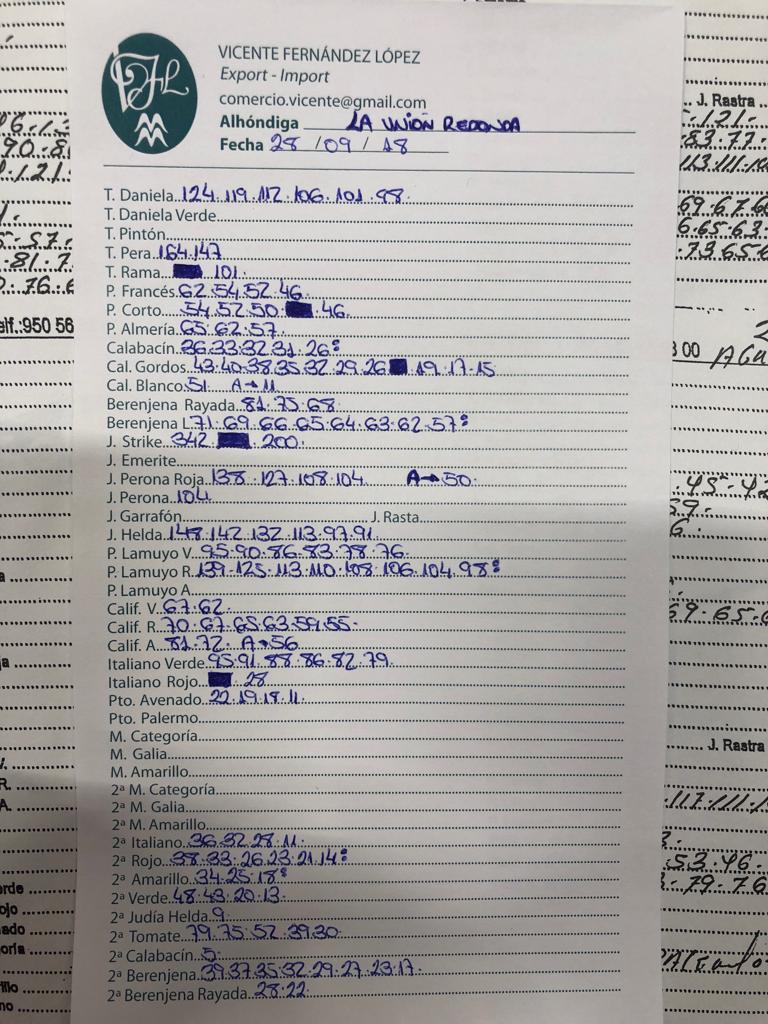 VICENTE FERNÁNDEZ LÓPEZ
Export - Import
comercio.vicente@gmail.com
Alhóndiga LA UNIÓN REDONDA
Fecha 28/09/18
T. Daniela 124.119.112.106.101.98.
T. Daniela Verde
T. Pintón
T. Pera 164.147
T. Rama 101.
P. Francés 62.54.52.46.
P. Corto 54.52.50. .46.
P. Almería 65.62.57.
Calabacín 36.33.32.31.26:
Cal. Gordos 43.40.38.35.32.29.26 .19.17.15
Cal. Blanco 51. A→11
Berenjena Rayada 81.75.68
Berenjena L 71.69.66.65.64.63.62.57:
J. Strike 342. .200.
J. Emerite
J. Perona Roja 138.127.108.104. A→50.
J. Perona 104
J. Garrafón J. Rasta
J. Helda 148.142.132.113.97.91.
P. Lamuyo V. 95.90.86.83.78.76.
P. Lamuyo R. 139.125.113.110.108.106.104.98:
P. Lamuyo A
Calif. V. 67.62.
Calif. R. 70.67.65.63.59.55.
Calif. A. 81.72. A→56
Italiano Verde 95.91.88.86.82.79.
Italiano Rojo 28
Pto. Avenado 22.19.18.11.
Pto. Palermo
M. Categoría
M. Galia
M. Amarillo
2ª M. Categoría
2ª M. Galia
2ª M. Amarillo
2ª Italiano 36.32.28.11.
2ª Rojo 38.33.26.23.21.14:
2ª Amarillo 34.25.18:
2ª Verde 48.43.20.13.
2ª Judía Helda 9.
2ª Tomate 79.75.52.39.30.
2ª Calabacín 5.
2ª Berenjena 39.37.35.32.29.27.23.17.
2ª Berenjena Rayada 28.22.
J. Rastra
J. Rastra